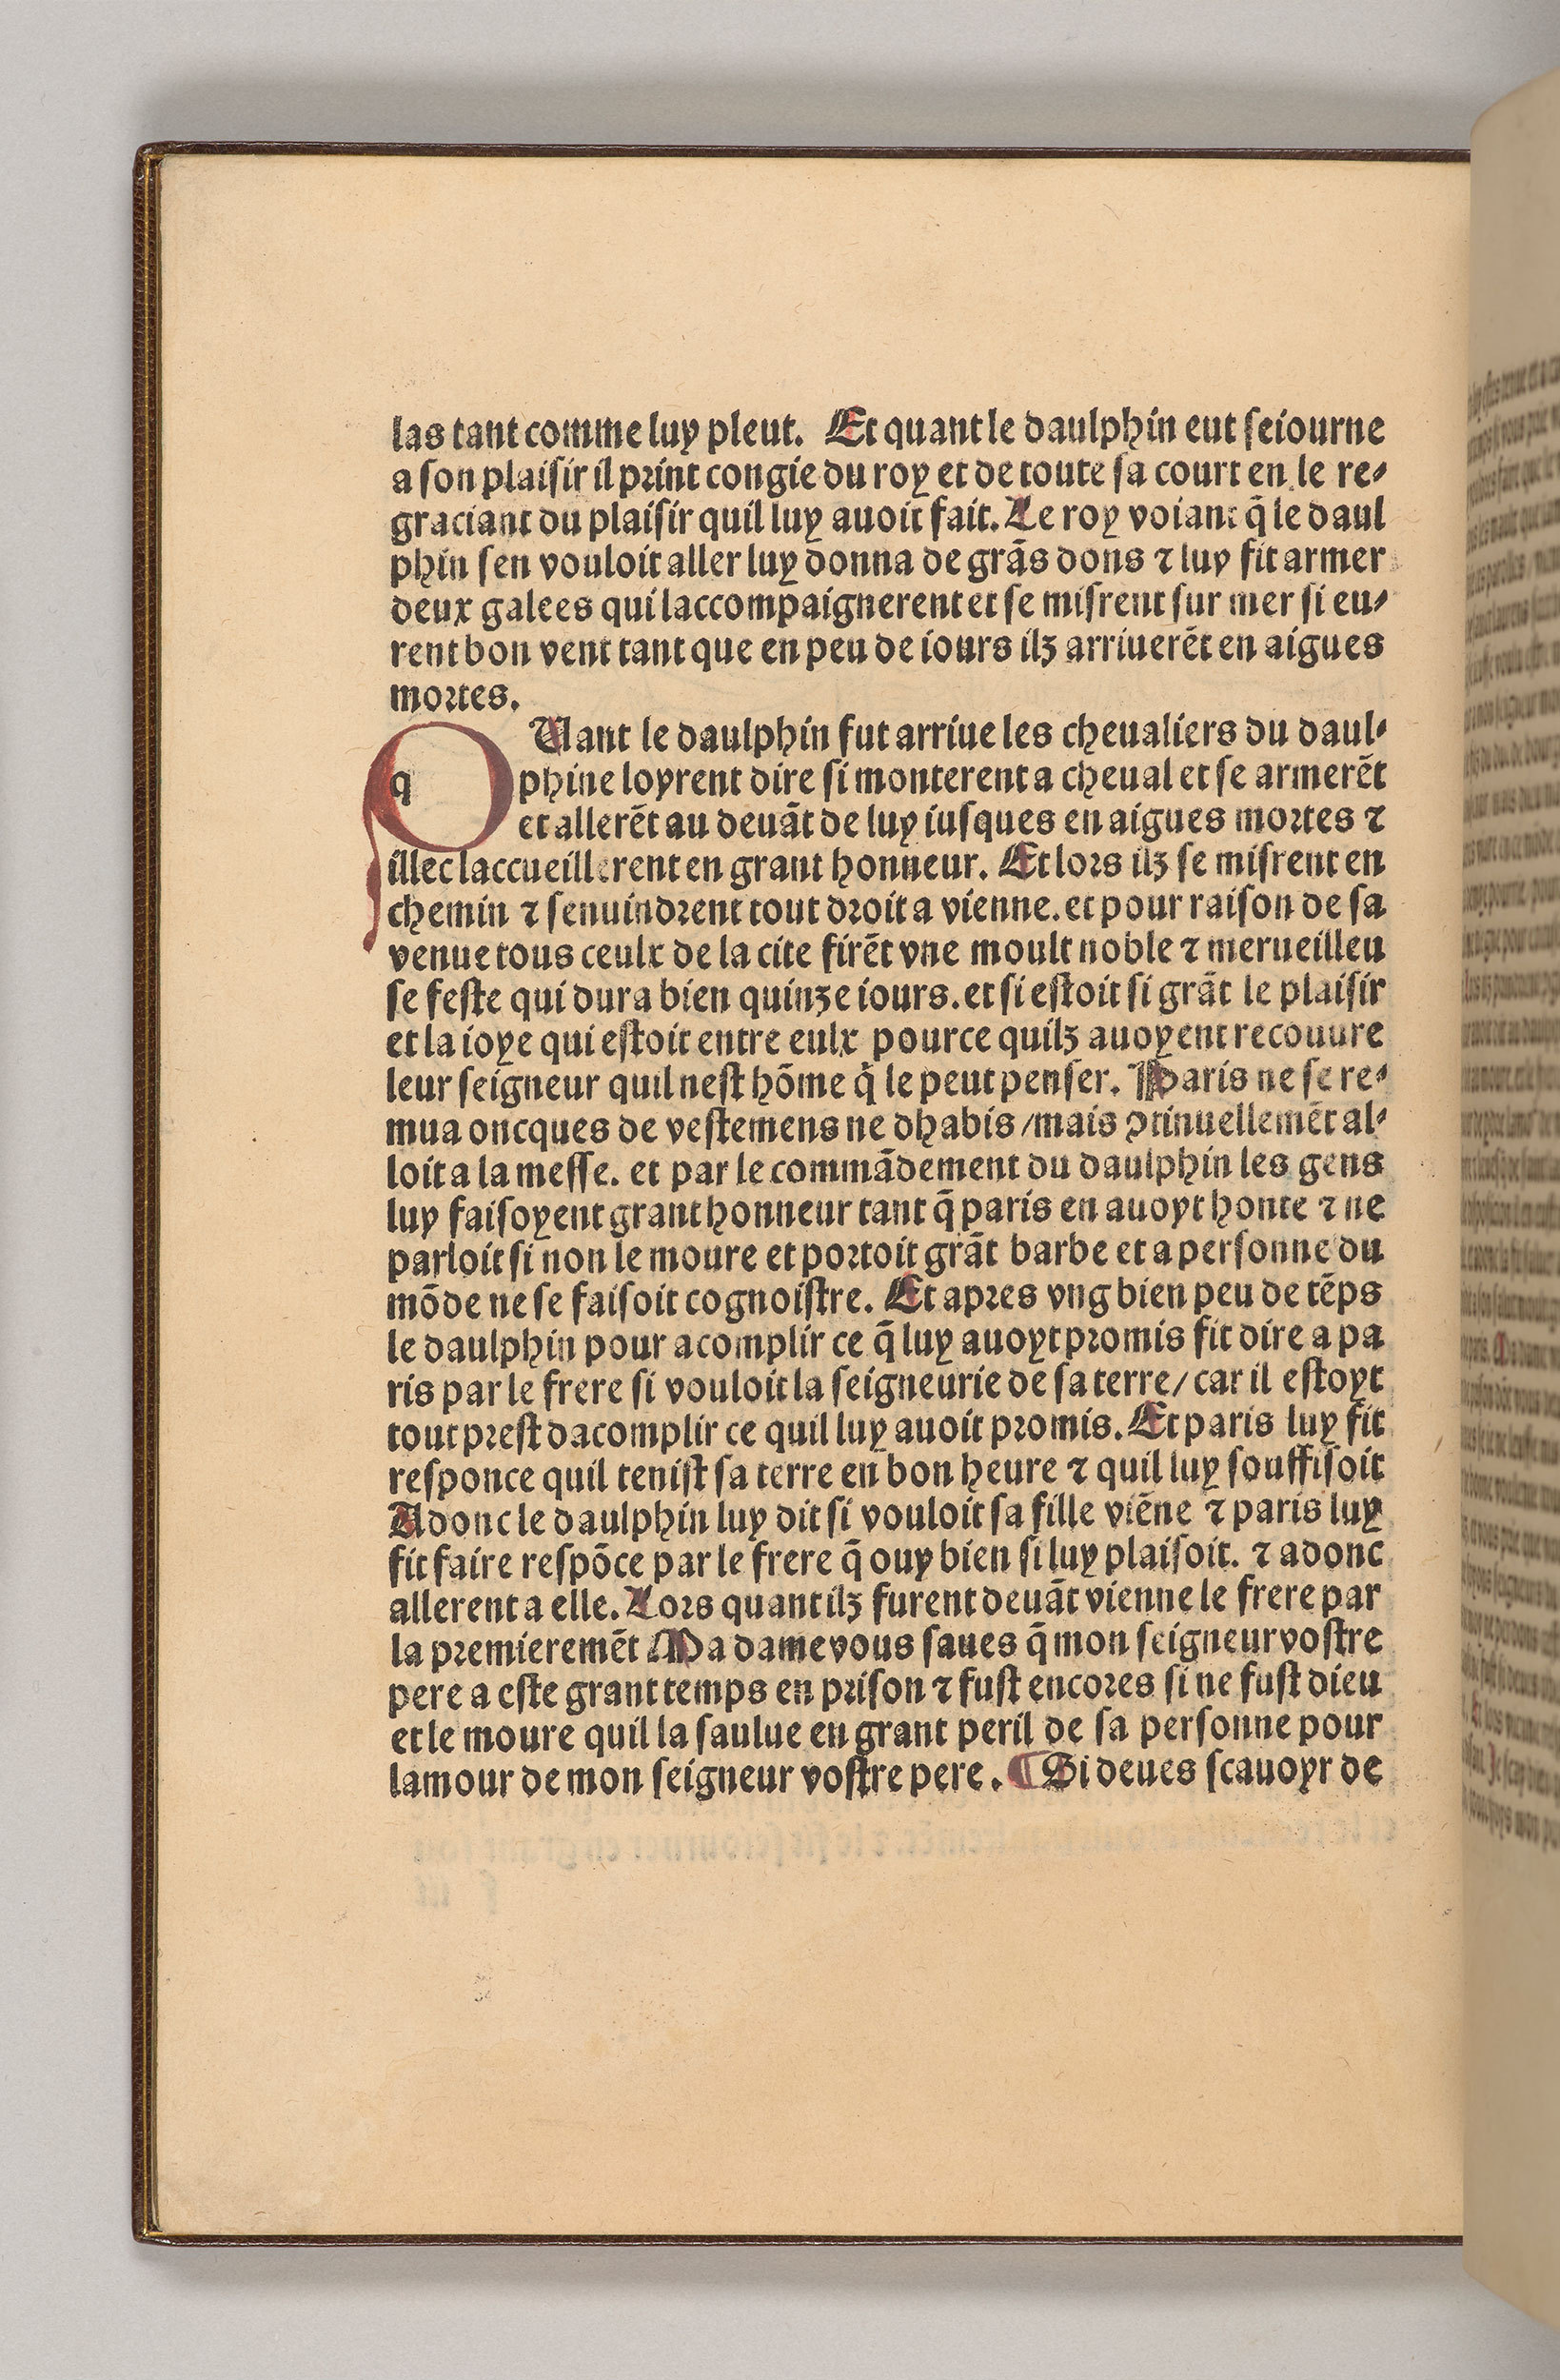 las tant comme luy pleut. Et quant le daulphin eut ſeiourne
a ſon plaiſir il print congie du roy et de toute ſa court en le re⸗
graciant du plaiſir quil luy auoit fait. Le roy voiant q̄ le daul
phin ſen vouloit aller luy donna de grās dons ⁊ luy fit armer
deux galees qui laccompaignerent et ſe miſrent ſur mer ſi eu⸗
rent bon vent tant que en peu de iours ilz arriuerēt en aigues
mortes.
qUant le daulphin fut arriue les cheualiers du daul⸗
phine loyrent dire ſi monterent a cheual et ſe armerēt
et allerēt au deuāt de luy iuſques en aigues mortes ⁊
illec laccueillerent en grant honneur. Et lors ilz ſe miſrent en
chemin ⁊ ſenuindrent tout droit a vienne. et pour raiſon de ſa
venue tous ceulx de la cite firēt vne moult noble ⁊ merueilleu
ſe feſte qui dura bien quinze iours. et ſi eſtoit ſi grāt le plaiſir
et la ioye qui eſtoit entre eulx pource quilz auoyent recouure
leur ſeigneur quil neſt hōme q̄ le peut penſer. Paris ne ſe re⸗
mua oncques de veſtemens ne dhabis /mais ꝯtinuellemēt al⸗
loit a la meſſe. et par le commādement du daulphin les gens
luy faiſoyent grant honneur tant q̄ paris en auoyt honte ⁊ ne
parloit ſi non le moure et portoit grāt barbe et a perſonne du
mōde ne ſe faiſoit cognoiſtre. Et apres vng bien peu de tēps
le daulphin pour acomplir ce q̄ luy auoyt promis fit dire a pa
ris par le frere ſi vouloit la ſeigneurie de ſa terre/ car il eſtoyt
tout preſt dacomplir ce quil luy auoit promis. Et paris luy fit
reſponce quil teniſt ſa terre en bon heure ⁊ quil luy ſouffiſoit
Adonc le daulphin luy dit ſi vouloit ſa fille viēne ⁊ paris luy
fit faire reſpōce par le frere q̄ ouy bien ſi luy plaiſoit. ⁊ adonc
allerent a elle. Lors quant ilz furent deuāt vienne le frere par
la premieremēt Ma dame vous ſaues q̄ mon ſeigneur voſtre
pere a eſte grant temps en priſon ⁊ fuſt encores ſi ne fuſt dieu
et le moure quil la ſaulue en grant peril de ſa perſonne pour
lamour de mon ſeigneur voſtre pere. ¶ Si deues ſcauoyr de